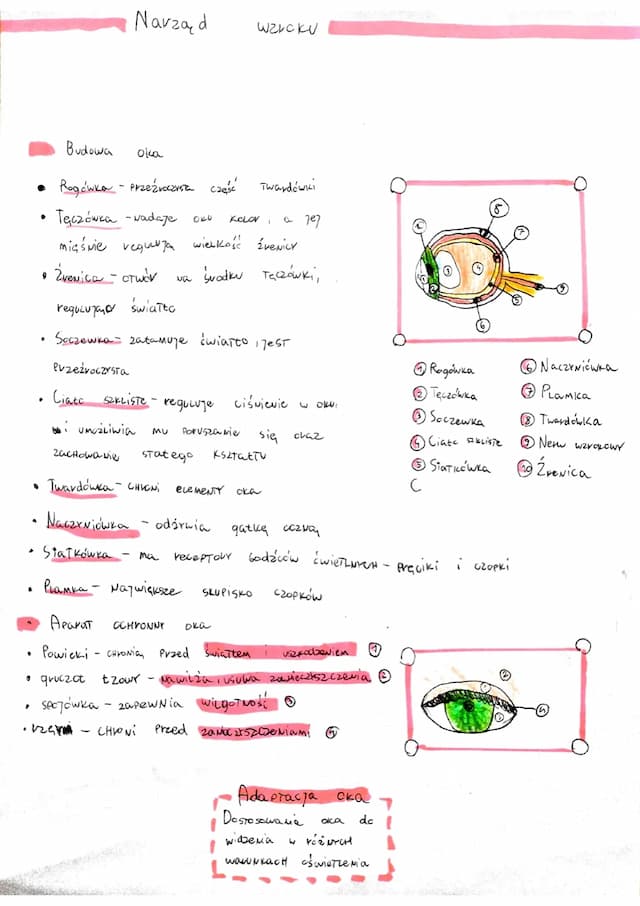 Narząd wzroku
Budowa oka
Rogówka - przeźroczysta część twardówki
Tęczówka - nadaje oku kolor, a jej
mięśnie regulują wielkość źrenicy
Źrenica - otwór na środku tęczówki,
regulujący światło
Soczewka - załamuje światło, jest
przeźroczysta
Ciało szkliste - reguluje ciśnienie w oku
i umożliwia mu poruszanie się oraz
zachowanie stałego kształtu
Twardówka - chroni elementy oka
Naczyniówka - odżywia gałkę oczną
Siatkówka - ma receptory bodźców świetlnych - pręciki i czopki
Plamka - największe skupisko czopków
1 Rogówka
2 Tęczówka
3 Soczewka
4 Ciało szkliste
5 Siatkówka
C
6 Naczyniówka
7 Plamka
8 Twardówka
9 Nerw wzrokowy
10 Źrenica
Aparat ochronny oka
Powieki - chronią przed światłem i uszkodzeniem 1
gruczoł łzowy - nawilża, i usuwa zanieczyszczenia 2
spojówka - zapewnia wilgotność 3
rzęsy - chroni przed zanieczyszczeniami 4
Adaptacja oka
Dostosowanie oka do
widzenia w różnych
warunkach oświetlenia